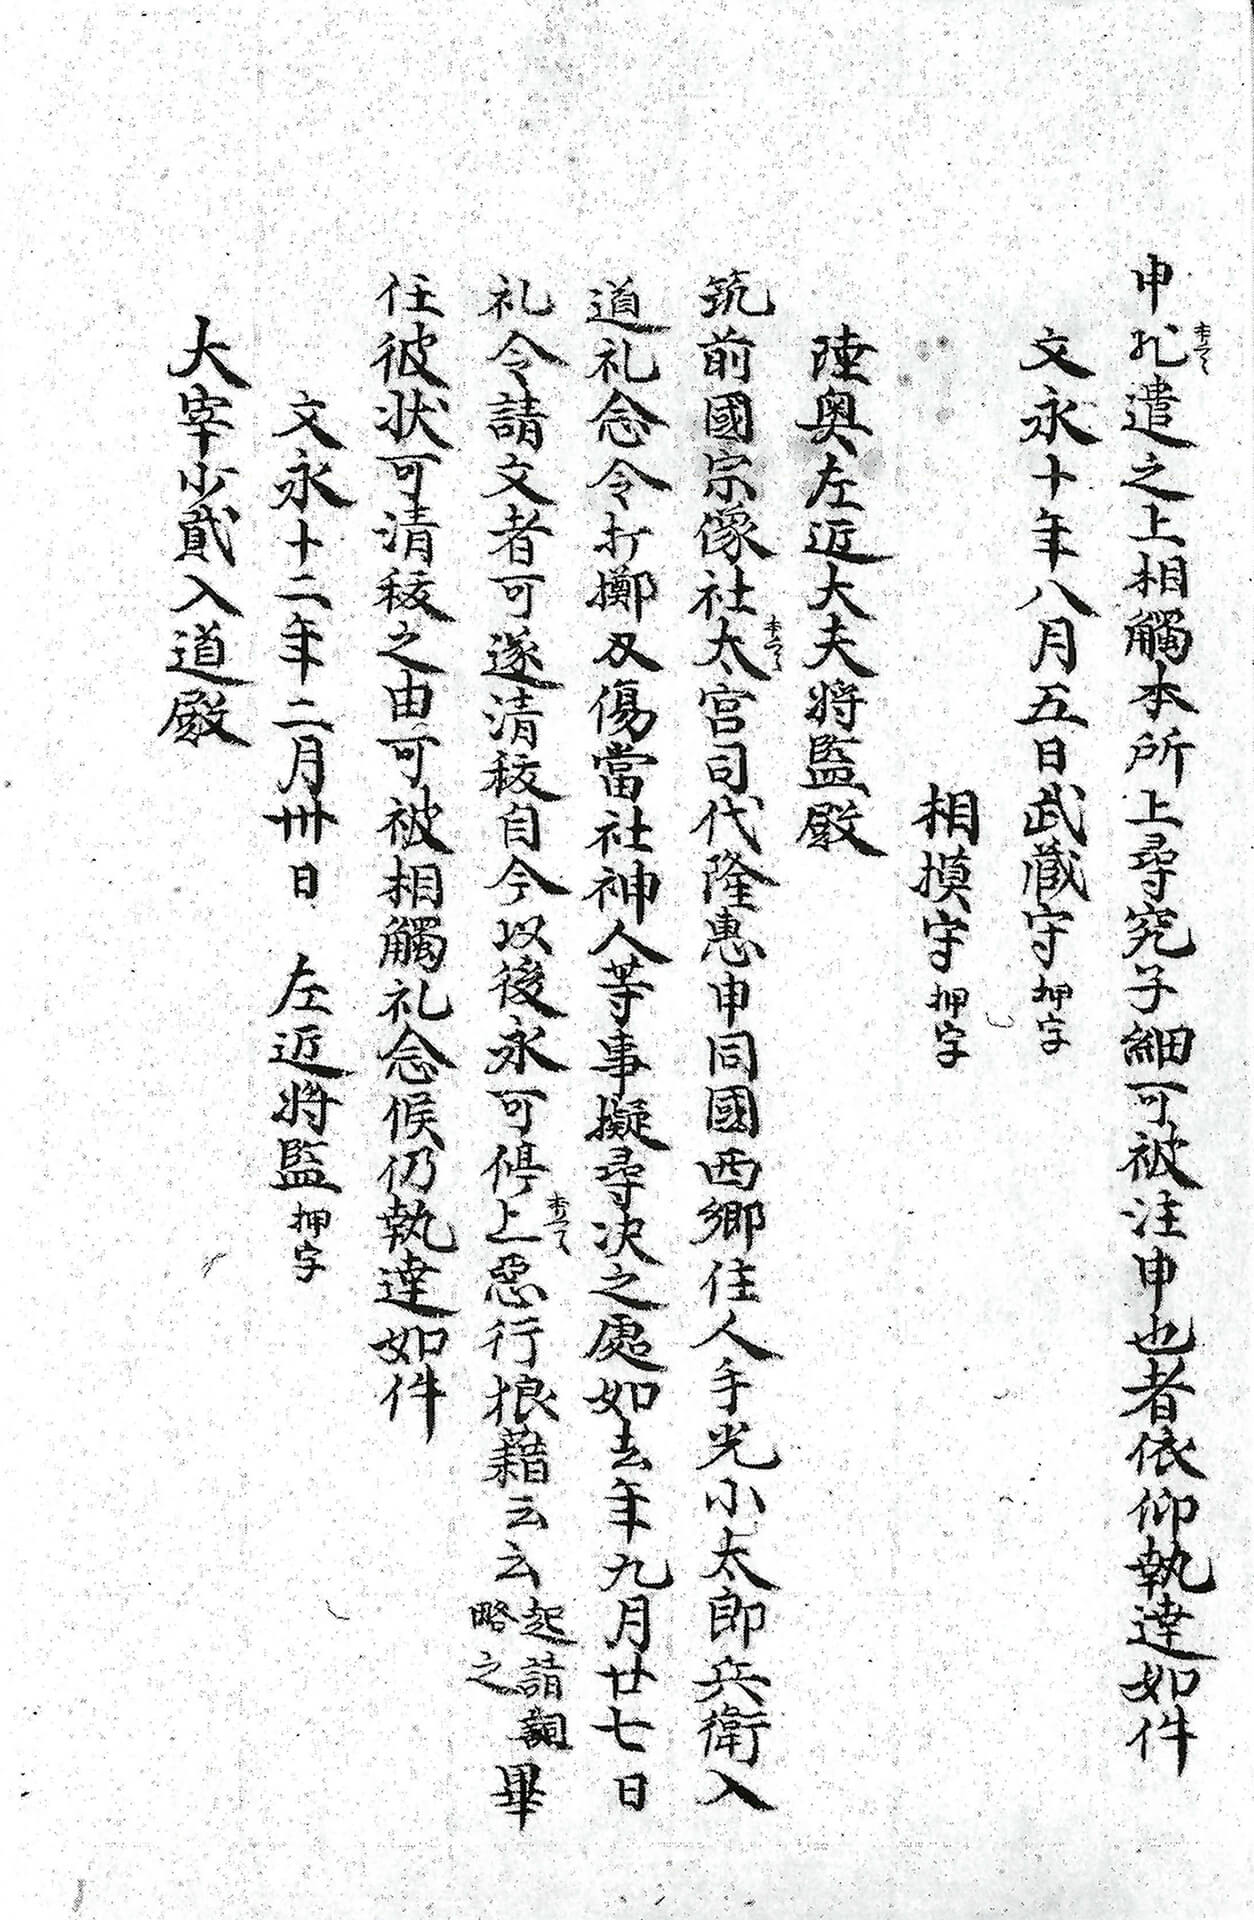 申状遣之上相觸本所上尋究子細可被注申也者依仰執達如件
文永十年八月五日武藏守押字
相摸守押字
陸奥左近大夫將監殿
筑前國宗像社太宮司代隆惠申同國西郷住人手光小太郎兵衛入
道礼念令打擲刃傷當社神人等事擬尋决之處如去年九月廿七日
礼令請文者可遂清祓自今以後永可停上惡行狼藉云云起請詞略之畢
任彼状可清祓之由可被相觸礼念候仍執達如件
文永十二年二月卅日 左近將監押字
大宰少貳入道殿